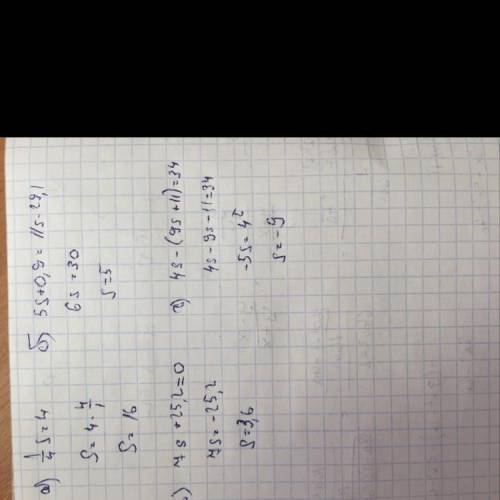 а) 1/4 s = 4
s = 4 · 4/1
s = 16
б) 5s + 0,9 = 11s - 29,1
6s = 30
s = 5
) 7s + 25,2 = 0
7s = -25,2
s = 3,6
г) 4s - (9s + 11) = 34
4s - 9s - 11 = 34
-5s = 45
s = -9